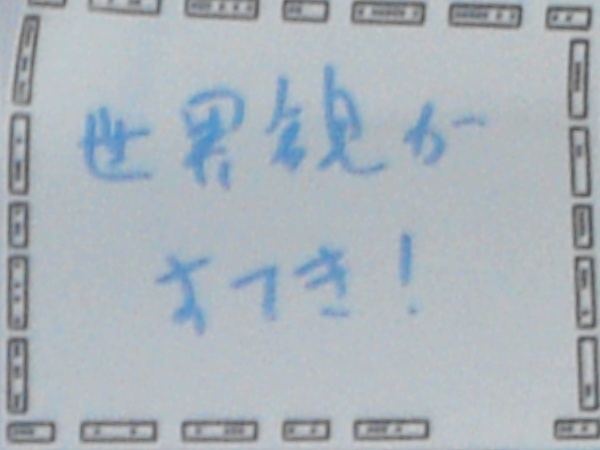 世界観が
すてき!